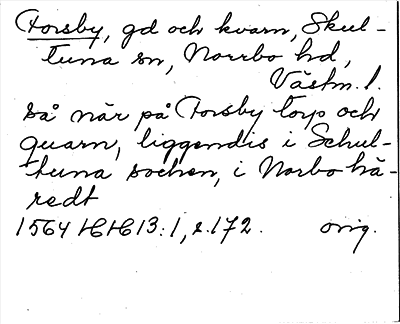 Forsby, gd och kvarn, Skul-
tuna sn, Norrbo hd,
Västm. l.
så når på Forsby torp och
quarn, liggendis i Schul-
tuna sochen, i Norbo hä-
redt
1564 HH 13:1, s. 172. orig.